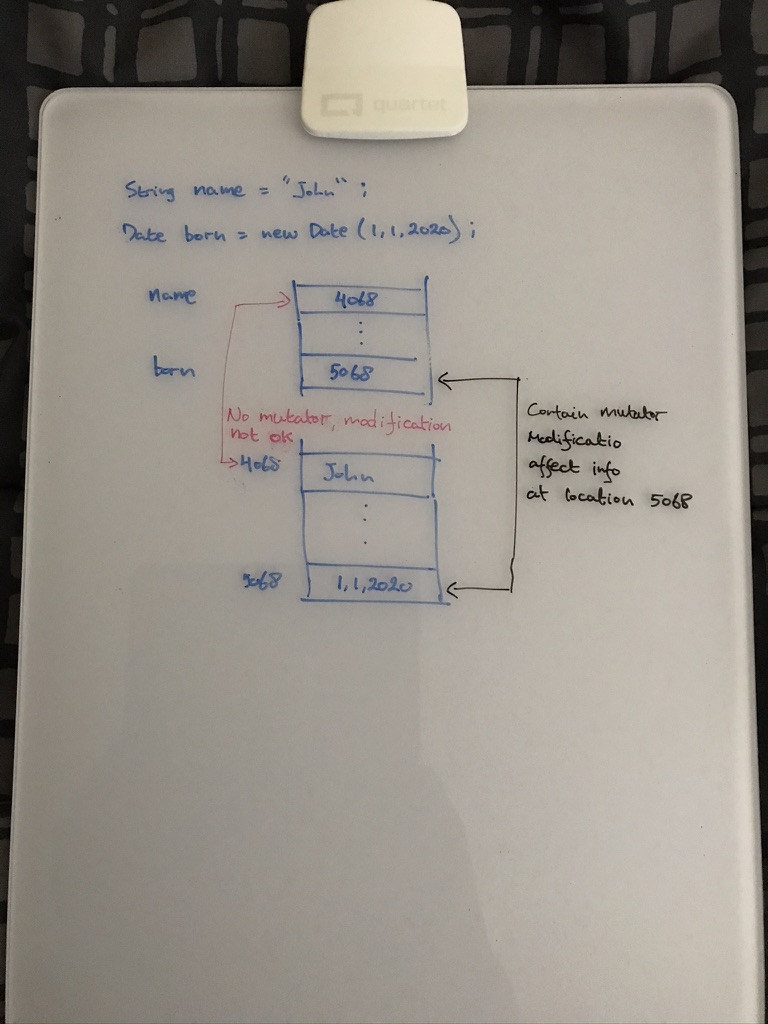 quartet
String name = "John" ;
Date born = new Date (1,1,2020) ;
name
4068
born
5068
No mutator, modification
not ok
4068
John
5068
1,1,2020
Contain mutator
Modificatio
affect info
at location 5068